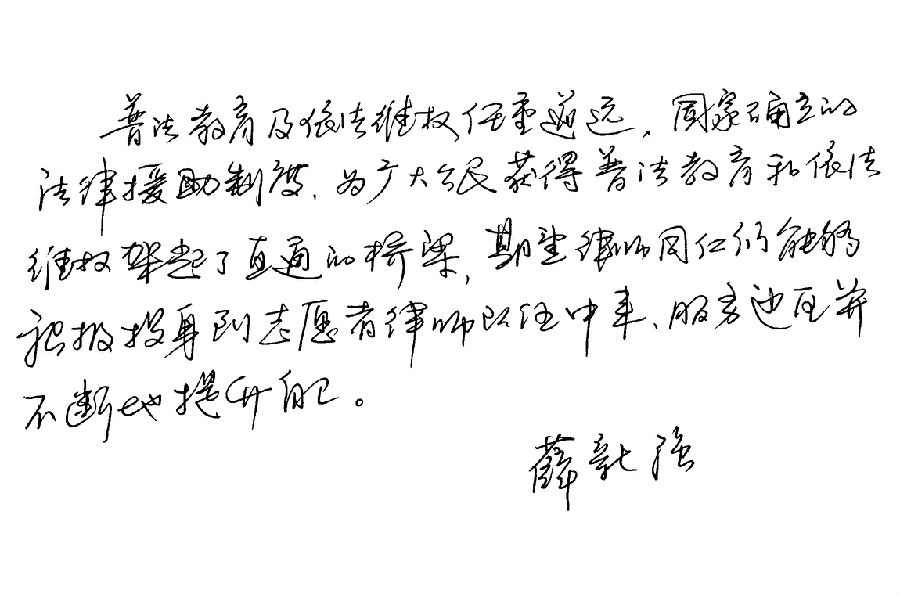 普法教育及依法维权任重道远，国家确立的
法律援助制度、为广大公民获得普法教育和依法
维权架起了直通的桥梁，期望律师同仁们能够
积极投身到志愿者律师队伍中来、服务边区并
不断地提升自己。
薛新强